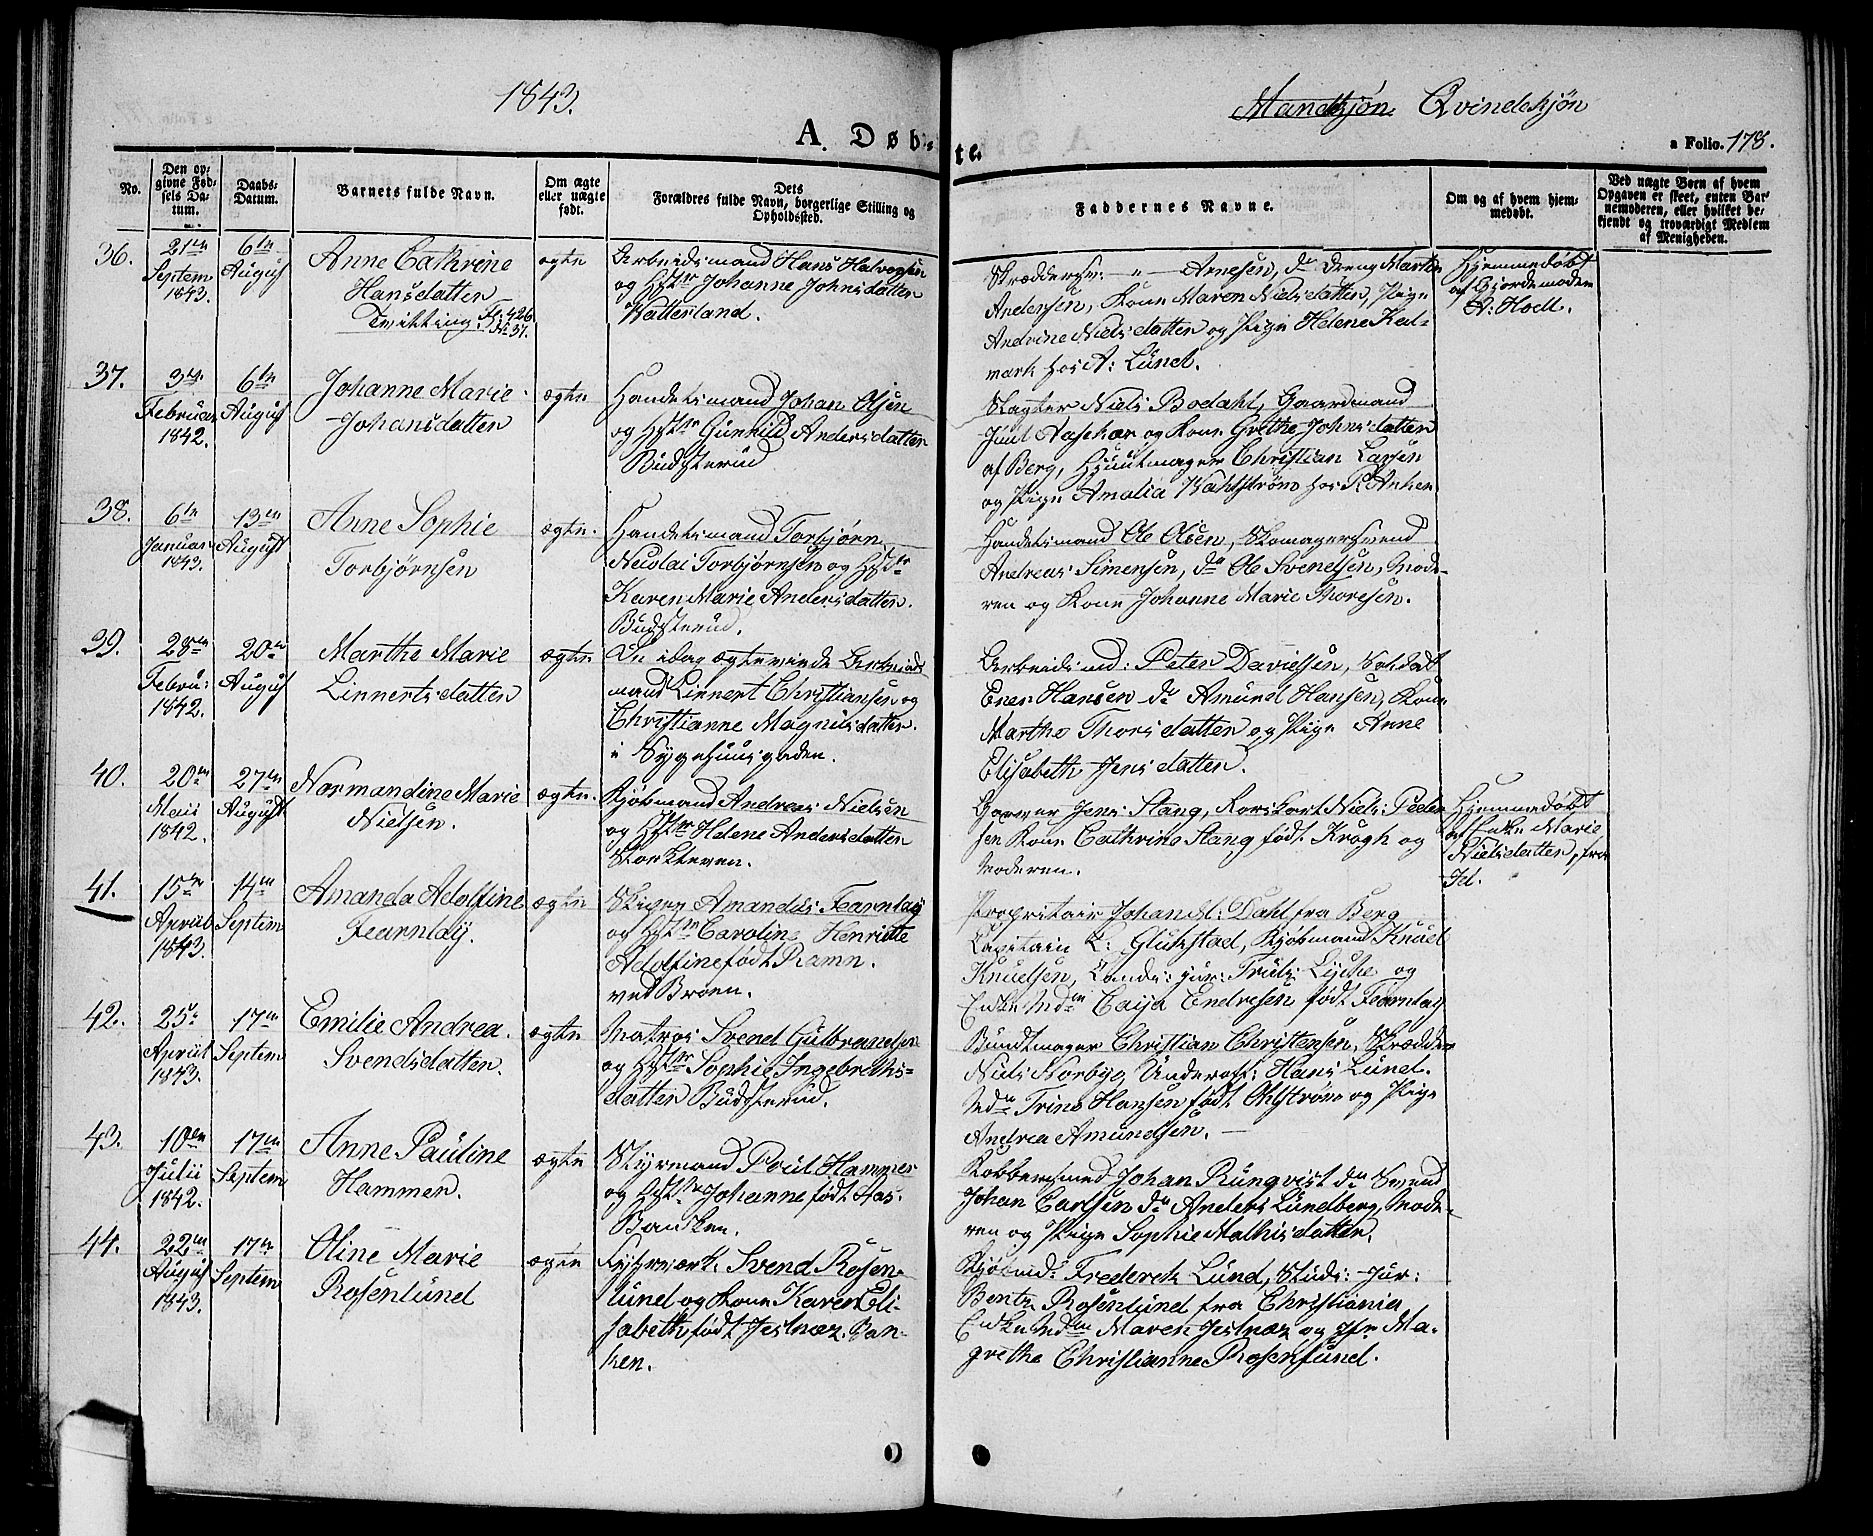 1843.
Mandkjøn. Qvindekjøn
A. Døb-
te.
a Folio. 178.
No.
Den op-
givne Fød-
sels Da-
tum.
Daabs-
Datum.
Barnets fulde Navn.
Om ægte
eller uægte
født.
Dets
Forældres fulde Navn, borgerlige Stilling og
Opholdssted.
Faddernes Navne.
Om og af hvem hjem-
medøbt.
Ved uægte Børn af hvem
Opgaven er skeet, enten Bar-
nemoderen, eller hvilket be-
kjendt og troværdigt Medlem
af Menigheden.
36.
21en
Septem
1843.
6te
August
Anne Cathrine
Hansdatter
Tvilling. Fl: 426
N: 37.
ægte
Arbeidsmand Hans Halvorsen
og Hstr Johanne Johnsdatter
Watterland.
Skræddersv: - " - Arnesen, do Dreng Martin
Andersen, Kone Maren Nielsdatter, Pige
Andrine Nielsdatter og Pige Helene Kal-
mark hos A: Lund.
Hjemmedøbt
af Gjordemoder
A: Hoell.
37.
3die
Februar
1842.
6te
August
Johanne Marie
Johansdatter
ægte
Handelsmand Johan Olsen
og Hstr Gunhild Andersdatter
Budsterud
Slagter Niels Bodahl, Gaardmand
Juul Aasekær og Kone Grethe Johnsdatter
af Berg, Hjuulmager Christian Larsen
og Pige Amalia Wahlstrøm hos R Anker
38.
6te
Januar
1843.
13en
August
Anne Sophie
Torbjørnsen
ægte.
Handelsmand Torbjørn
Nicolai Torbjørnsen og Hstr
Karen Marie Andersdatter.
Budsterud.
Handelsmand Ole Olsen, Skomagersvend
Andreas Simensen, do Ole Svendsen, Mode-
ren og Kone Johanne Marie Thoresen.
39.
28en
Febru:
1842.
20en
August
Marthe Marie
Linnertsdatter
ægte
De idag ægteviede Arbeids
mand Linnert Christiansen og
Christianne Magnusdatter.
i Sygehuusgaden.
Arbeidsmd: Peter Davielsen, Soldat
Ener Hansen do Amund Hansen, Kone
Marthe Thorsdatter og Pige Anne
Elisabeth Jensdatter.
40.
20en
Maii
1842.
27en
August
Normandine Marie
Nielsen.
ægte.
Kjøbmand Andreas Nielsen
og Hstr Helene Andersdatter
Garver Jens Stang, Peder
sen Kone Cathrine Stang født Krogh og
Moderen.
Hjemmedøbt
af Enke Marie
Nielsdatter, fra
Id.
41.
15en
April
1843.
14en
Septem
Amanda Adolfine
Fearnlay.
ægte
Amandus Fearnlay
og Hstr Caroline Henriette
Adolfine født Ramn.
ved Broen.
Propritair Johan M: Dahl fra Berg
Capitain L: Glükstad, Kjøbmand Knud
Knudsen, Cand: jur: Frütz Lyche og
Enke Mdm Caija Endresen født Fearnlay
42.
25:
April
1843.
17en
Septem
Emilie Andrea.
Svendsdatter.
ægte
Matros Svend Gulbrandsen
og Hstr Sophie Ingebreths-
datter Budsterud.
Bundtmager Christian Christensen, Skrædder
Niels Norbye, Underoff: Hans Lund.
Mdm Trine Hansen født Ohlstrøm og Pige
Andrea Amundsen. —
43.
10en
Julii
1842.
17en
Septem
Anne Pauline
Hammer.
ægte
Styrmand Poul Hammer
og Hstr Johanne født Aas.
Banken.
Kobbersmed Johan Rünqvist do Svend
Johan Carlsen do Anders Lundberg, Mode-
ren og Pige Sophie Mathisdatter.
44.
22en
August
1843.
17en
Septem
Oline Marie
Rosenlund
ægte
Fyhrværk: Svend Rosen-
lund og Kone Karen Eli-
sabeth født Jelnæz. Ban-
ken.
Kjøbmd: Frederck Lund, Stud: Jur:
Bentz Rosenlund fra Christiania
Enke Mdm Maren Jelnæz og Jfr Ma-
grethe Christianne Rosenlund.